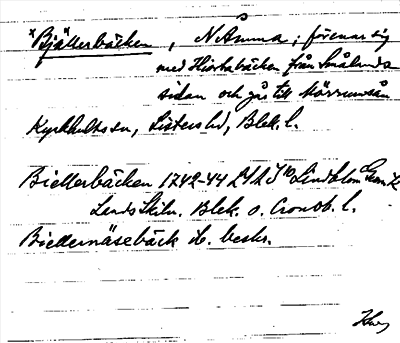 *Bjällerbäcken, N Åmma; förenar sig
med Hjortabäcken från Smålands
sidan och gå till Mörrumsån
Kyrkhults sn, Listers hd, Blek. l.
Biellerbäcken 1742-44 LSA Lindblom
Lands Skiln. Blek. o. Cronob. l.
Biellernäsebäck ib. beskr.